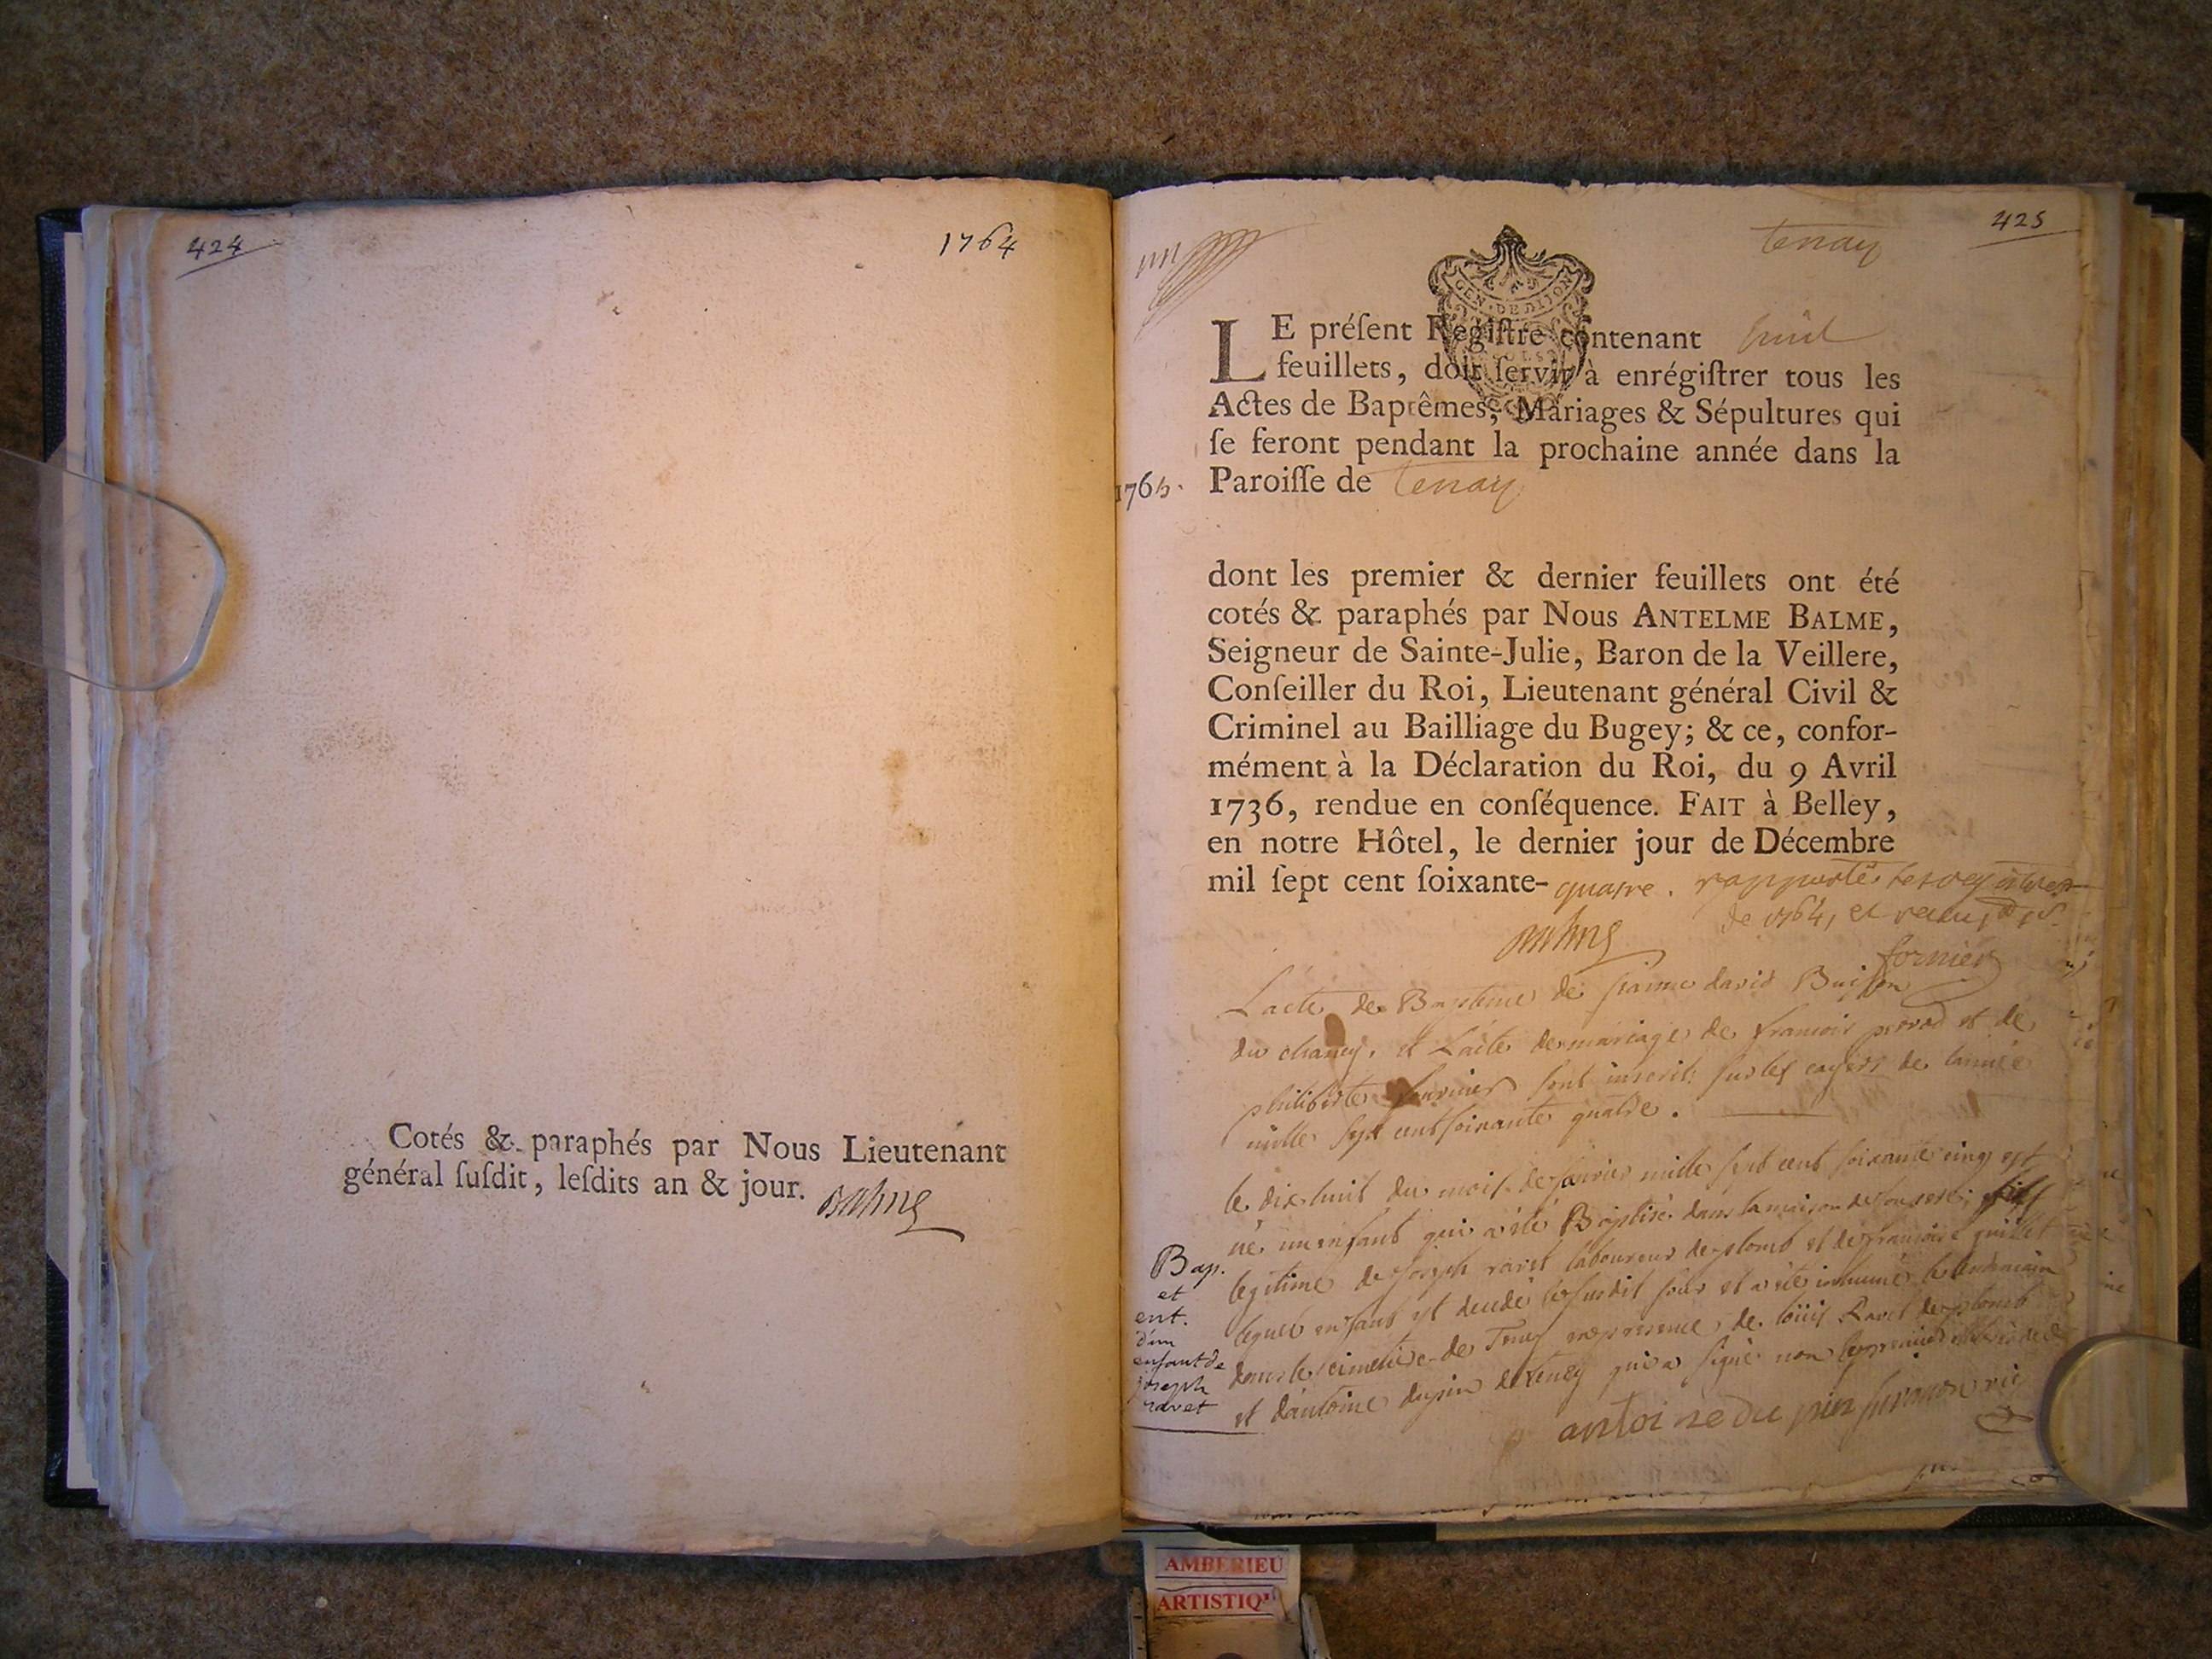 424
1764
Cotés & paraphés par Nous Lieutenant
général ſuſdit, leſdits an & jour. Balme
425
tenay
GEN. DE DIJON
LE préſent Regiſtre contenant huit
feuillets, doit ſervir à enrégiſtrer tous les
Actes de Baptêmes, Mariages & Sépultures qui
ſe feront pendant la prochaine année dans la
1765. Paroiſſe de tenay
dont les premier & dernier feuillets ont été
cotés & paraphés par Nous ANTELME BALME,
Seigneur de Sainte-Julie, Baron de la Veillere,
Conſeiller du Roi, Lieutenant général Civil &
Criminel au Bailliage du Bugey; & ce, confor-
mément à la Déclaration du Roi, du 9 Avril
1736, rendue en conſéquence. FAIT à Belley,
en notre Hôtel, le dernier jour de Décembre
mil ſept cent ſoixante- quatre. rapporté les registres
de 1764, et receu
Balme
fornier
L'acte de Bapteme de david Buisson
du chaney, et L'acte de mariage de francois et de
philiberte fournier sont inscrit sur les cayers de l'année
mille sept cent soixante quatre.
le dix huit du mois de janvier mille sept cent soixante cinq est
né un enfant qui a été Baptisé dans la maison de son pere, fils
legitime de joseph ravet laboureur de plomb et de francoise guillet
lequel enfant est decedé le susdit jour et a été inhumé le lendemain
dans le cimetiere de Tenay en presence de loüis Ravet de plomb
et d'antoine dupin de tenay qui a signé non le premier
Bap.
et
ent.
d'un
enfant de
joseph
ravet
antoine du pin
AMBERIEU
ARTISTIQ